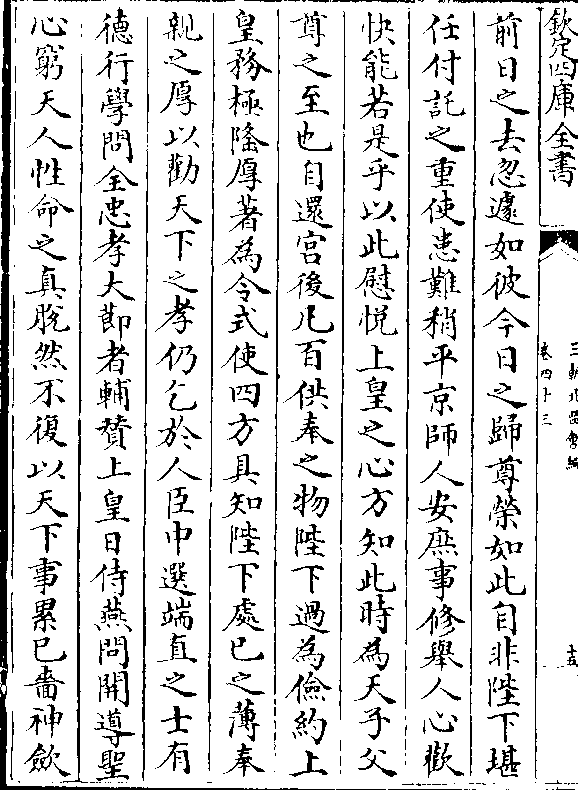 欽定四庫全書
三朝北盟會編
卷四十三
十五
前日之去忽遽如彼今日之歸尊榮如此自非陛下堪
任付託之重使患難稍平京師人安庶事修舉人心歡
快能若是乎以此慰悦上皇之心方知此時為天子父
尊之至也自還宫後凡百供奉之物陛下過為儉約上
皇務極隆厚著為令式使四方具知陛下處已之薄奉
親之厚以勸天下之孝仍乞於人臣中選端直之士有
德行學問全忠孝大節者輔賛上皇日侍燕問開導聖
心窮天人性命之真脱然不復以天下事累已嗇神歛